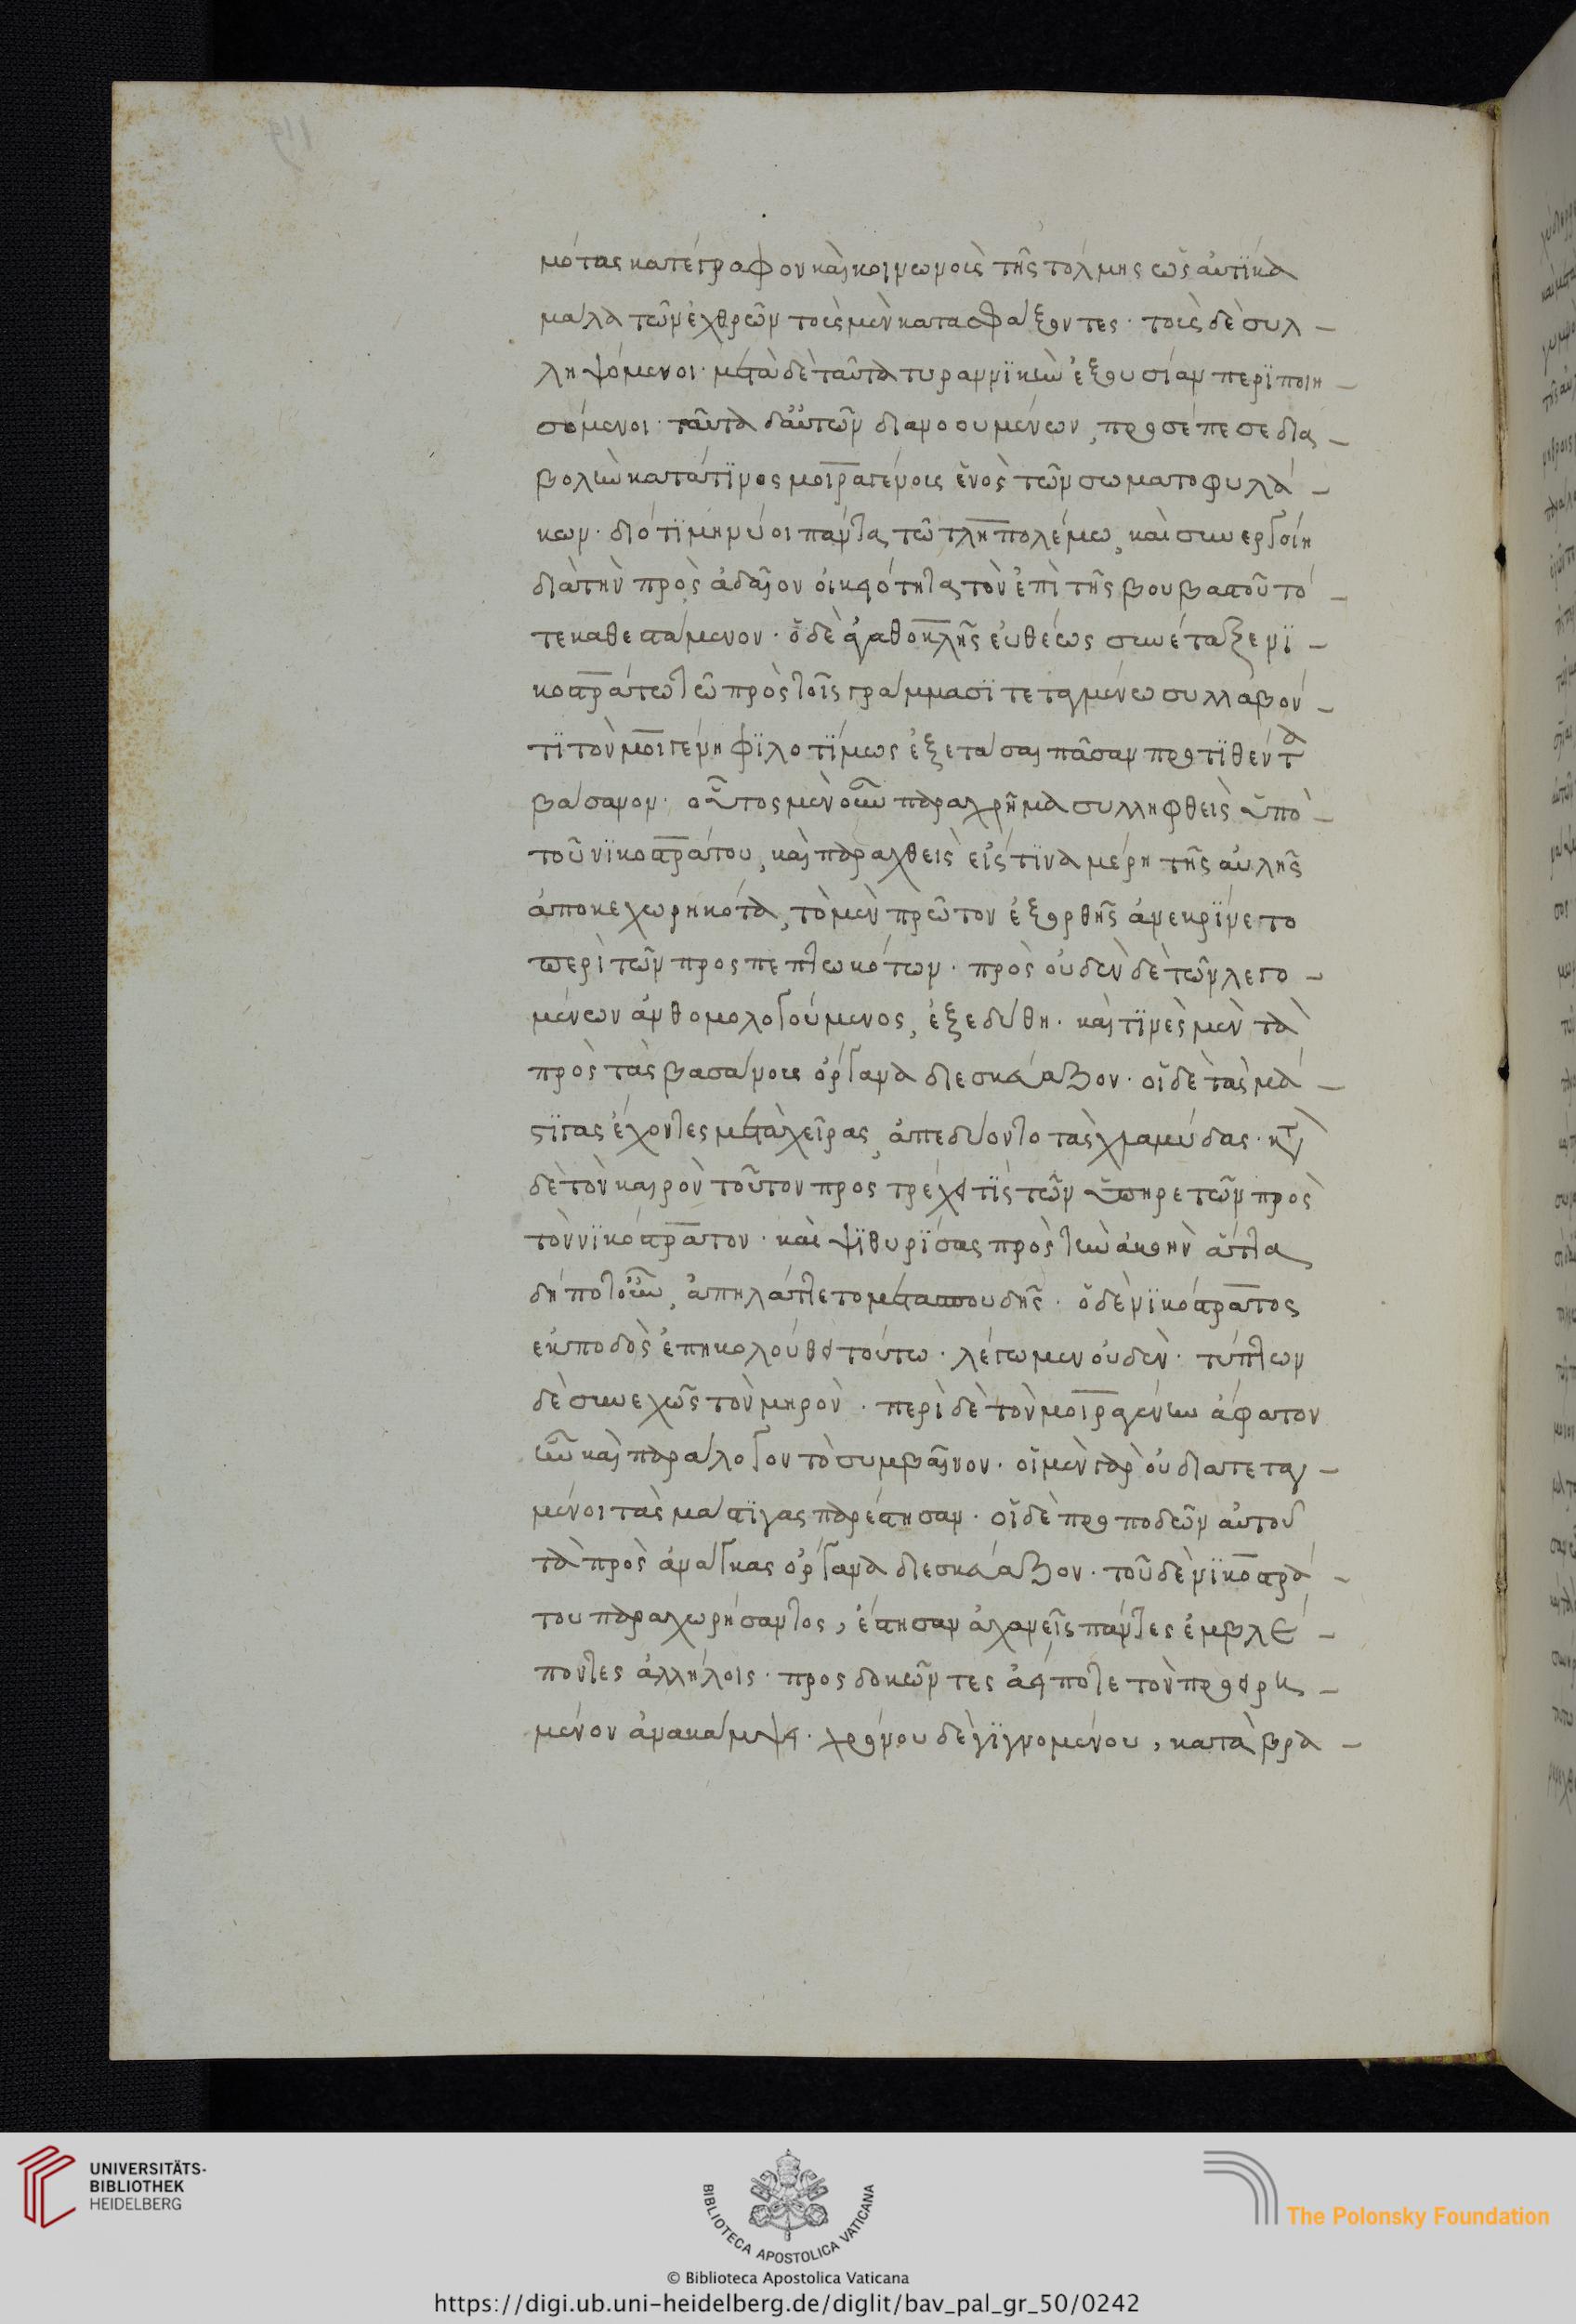 μότας κατέγραφον καὶ κοινωνοὺς τῆς τόλμης ὡς αὐτίκα
μάλα τῶν ἐχθρῶν τοὺς μὲν κατασφάξοντες· τοὺς δὲ συλ-
ληψόμενοι· μετὰ δὲ ταῦτα τυραννικὴν ἐξουσίαν περιποιη-
σόμενοι· ταῦτα δ' αὐτῶν διανοουμένων, προσέπεσε δια-
βολὴν κατά τινος μοιραγένους ἑνὸς τῶν σωματοφυλά-
κων· διότι μηνύοι πάντα τῷ τληπολέμω, καὶ συνεργοίη
διὰ τὴν πρὸς ἀδαῖον οἰκειότητα τὸν ἐπὶ τῆς βουβαστοῦ τό-
τε καθεσταμενον· ὁ δὲ ἀγαθοκλῆς εὐθέως συνέταξε νι-
κοστράτω τῶ πρὸς τοῖς γράμμασι τεταγμένω συλλαβόν-
τι τὸν μοιραγένη φιλοτίμως ἐξετάσαι πᾶσαν προτιθέντα
βάσανον· οὗτος μὲν οὖν παραχρῆμα συλληφθεὶς ὑπὸ-
τοῦ νικοστράτου, καὶ παραχθεὶς εἴς τινα μέρη τῆς αὐλῆς
ἀποκεχωρηκότα, τὸ μὲν πρῶτον ἐξ ὀρθῆς ἀνεκρίνετο
περὶ τῶν προσπεπτωκότων· πρὸς οὐδὲν δὲ τῶν λεγο-
μένων ἀνθομολογούμενος, ἐξεδύθη· καὶ τινὲς μὲν τὰ
πρὸς τὰς βασάνους ὄργανα διεσκεύαζον· οἱ δὲ τὰς μά-
στιγας ἔχοντες μετὰ χεῖρας, ἀπεδύοντο τὰς χλαμύδας· κατὰ
δὲ τὸν καιρὸν τοῦτον προστρέχει τὶς τῶν ὑπηρετῶν πρὸς
τὸν νικόστρατον· καὶ ψιθυρίσας πρὸς τὴν ἀκοὴν ἅττα
δήποτ' οὖν, ἀπηλάττετο μετὰ σπουδῆς· ὁ δὲ νικόστρατος
ἐκποδὸς ἐπηκολούθει τούτω· λέγων μεν οὐδὲν· τύπτων
δὲ συνεχῶς τὸν μηρὸν· περὶ δὲ τὸν μοιραγένην ἄφατον
ἦν καὶ παράλογον τὸ συμβαῖνον· οἱ μὲν γὰρ οὐ διατεταγ-
μένοι τὰς μάστιγας παρέστησαν· οἱ δὲ προ ποδῶν αὐτοῦ
τὰ πρὸς ἀνάγκας ὄργανα διεσκεύαζον· τοῦ δὲ νικοστρά-
του παραχωρήσαντος, ἔστησαν ἀχανεῖς πάντες ἐμβλέ-
ποντες ἀλλήλοις· προσδοκῶντες ἀεί ποτε τὸν προειρη-
μένον ἀνακάμψει· χρόνου δὲ γιγνομένου, κατὰ βρα-
UNIVERSITÄTS-
BIBLIOTHEK
HEIDELBERG
BIBLIOTECA APOSTOLICA VATICANA
The Polonsky Foundation
© Biblioteca Apostolica Vaticana
https://digi.ub.uni-heidelberg.de/diglit/bav_pal_gr_50/0242